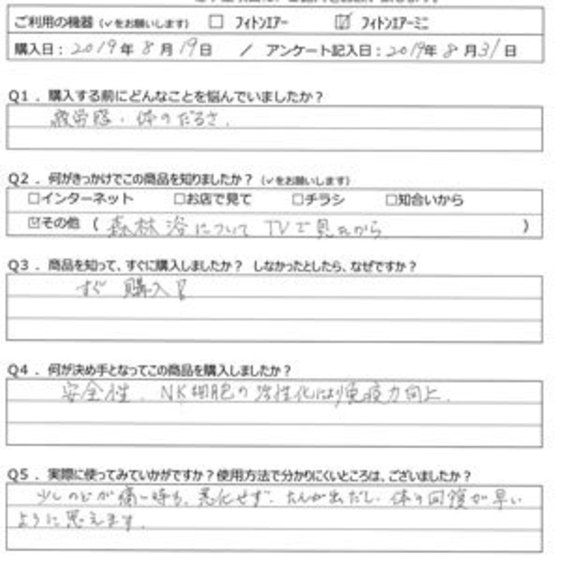 ご利用の機器(✓をお願いします) □ フィトンエアー ☑ フィトンエアーミニ
購入日: 2019年 8月 19日 / アンケート記入日: 2019年 8月31日
Q1.購入する前にどんなことを悩んでいましたか?
疲労感・体のだるさ.
Q2.何がきっかけでこの商品を知りましたか?(✓をお願いします)
□インターネット □お店で見て □チラシ □知合いから
☑その他 ( 森林浴について TVで見たから )
Q3.商品を知って、すぐに購入しましたか? しなかったとしたら、なぜですか?
すぐ 購入
Q4.何が決め手となってこの商品を購入しましたか?
安全性. NK細胞の活性化により免疫力向上.
Q5.実際に使ってみていかがですか?使用方法で分かりにくいところは、ございましたか?
少しのどが痛い時も、悪化せず、たんが出だし、体の回復が早い
ように思えます.